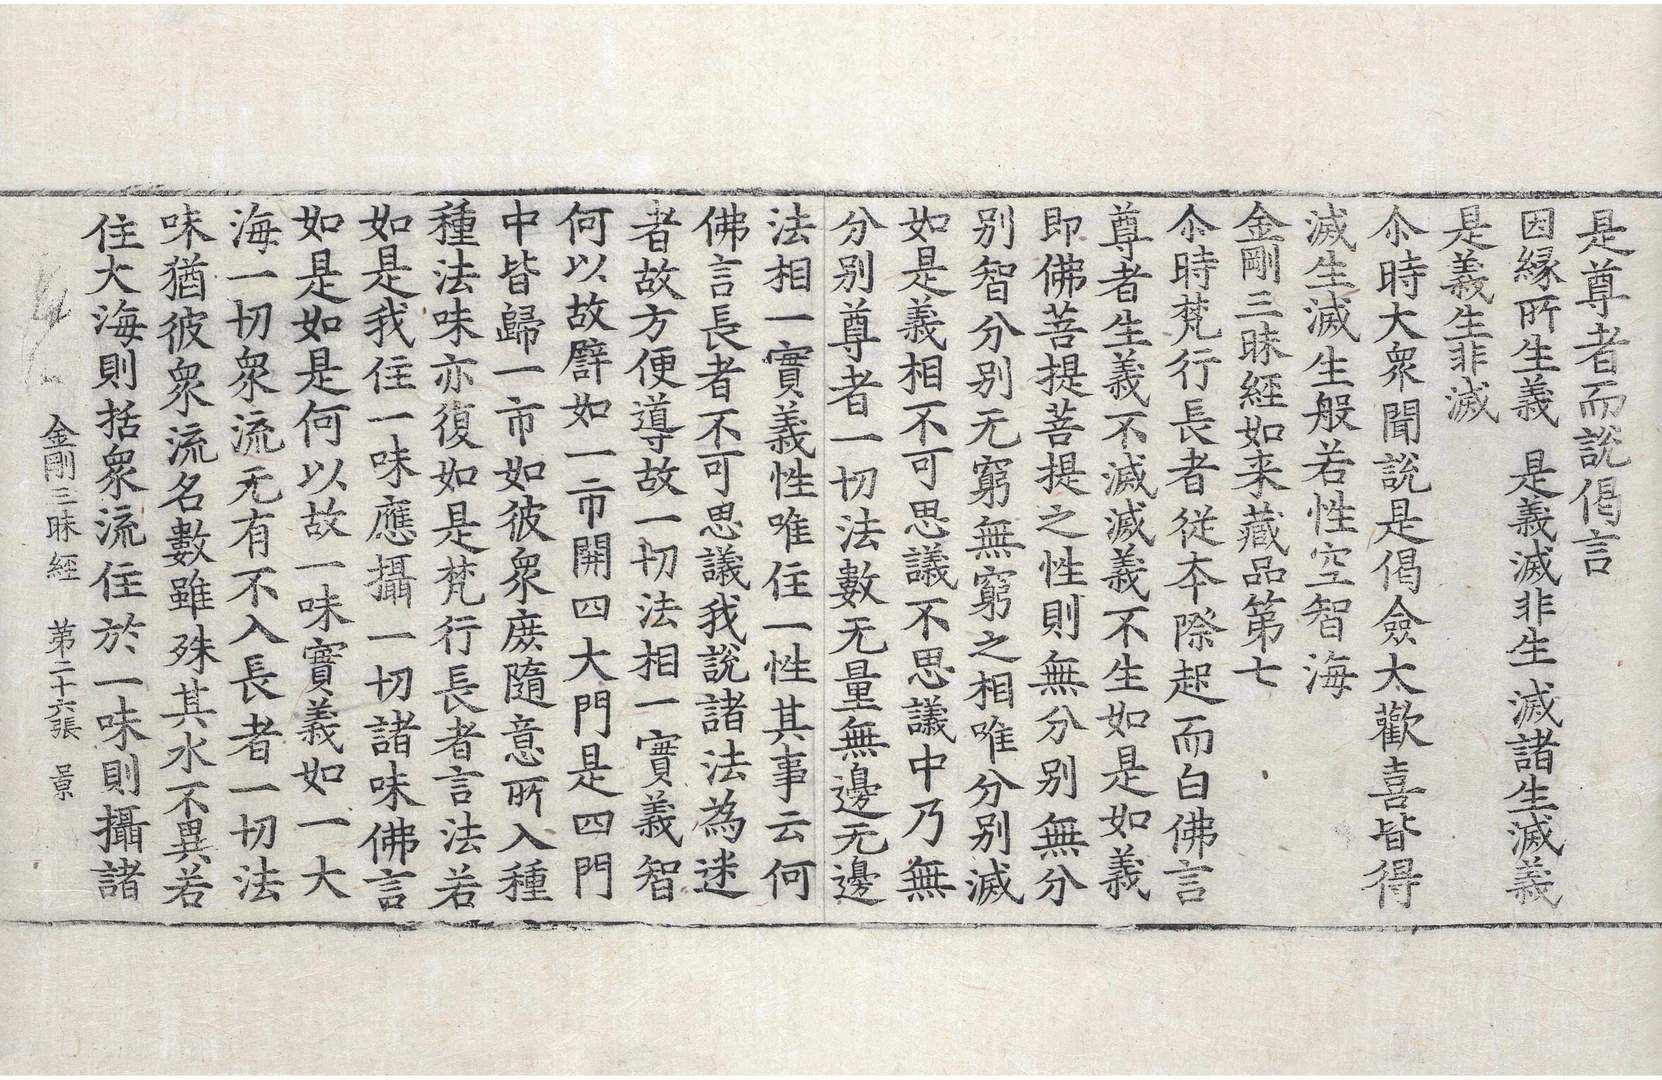 是尊者而說偈言
因緣所生義　是義滅非生　滅諸生滅義
是義生非滅
尒時大衆聞說是偈僉大歡喜皆得
滅生滅生般若性空智海
金剛三昧經如来藏品第七
尒時梵行長者從夲際起而白佛言
尊者生義不滅滅義不生如是如義
即佛菩提菩提之性則無分別無分
別智分別无窮無窮之相唯分別滅
如是義相不可思議不思議中乃無
分別尊者一切法數无量無邊无邊
法相一實義性唯住一性其事云何
佛言長者不可思議我說諸法為迷
者故方便導故一切法相一實義智
何以故譬如一市開四大門是四門
中皆歸一市如彼衆庶隨意所入種
種法味亦復如是梵行長者言法若
如是我住一味應攝一切諸味佛言
如是如是何以故一味實義如一大
海一切衆流无有不入長者一切法
味猶彼衆流名數雖殊其水不異若
住大海則括衆流住於一味則攝諸
金剛三昧經　第二十六張　景